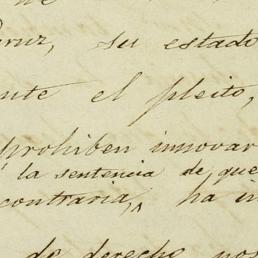 de
Cruz, su estado
ente el pleito,
prohiben innovar
la sentencia de que
contraria, ha in
de derecho pos